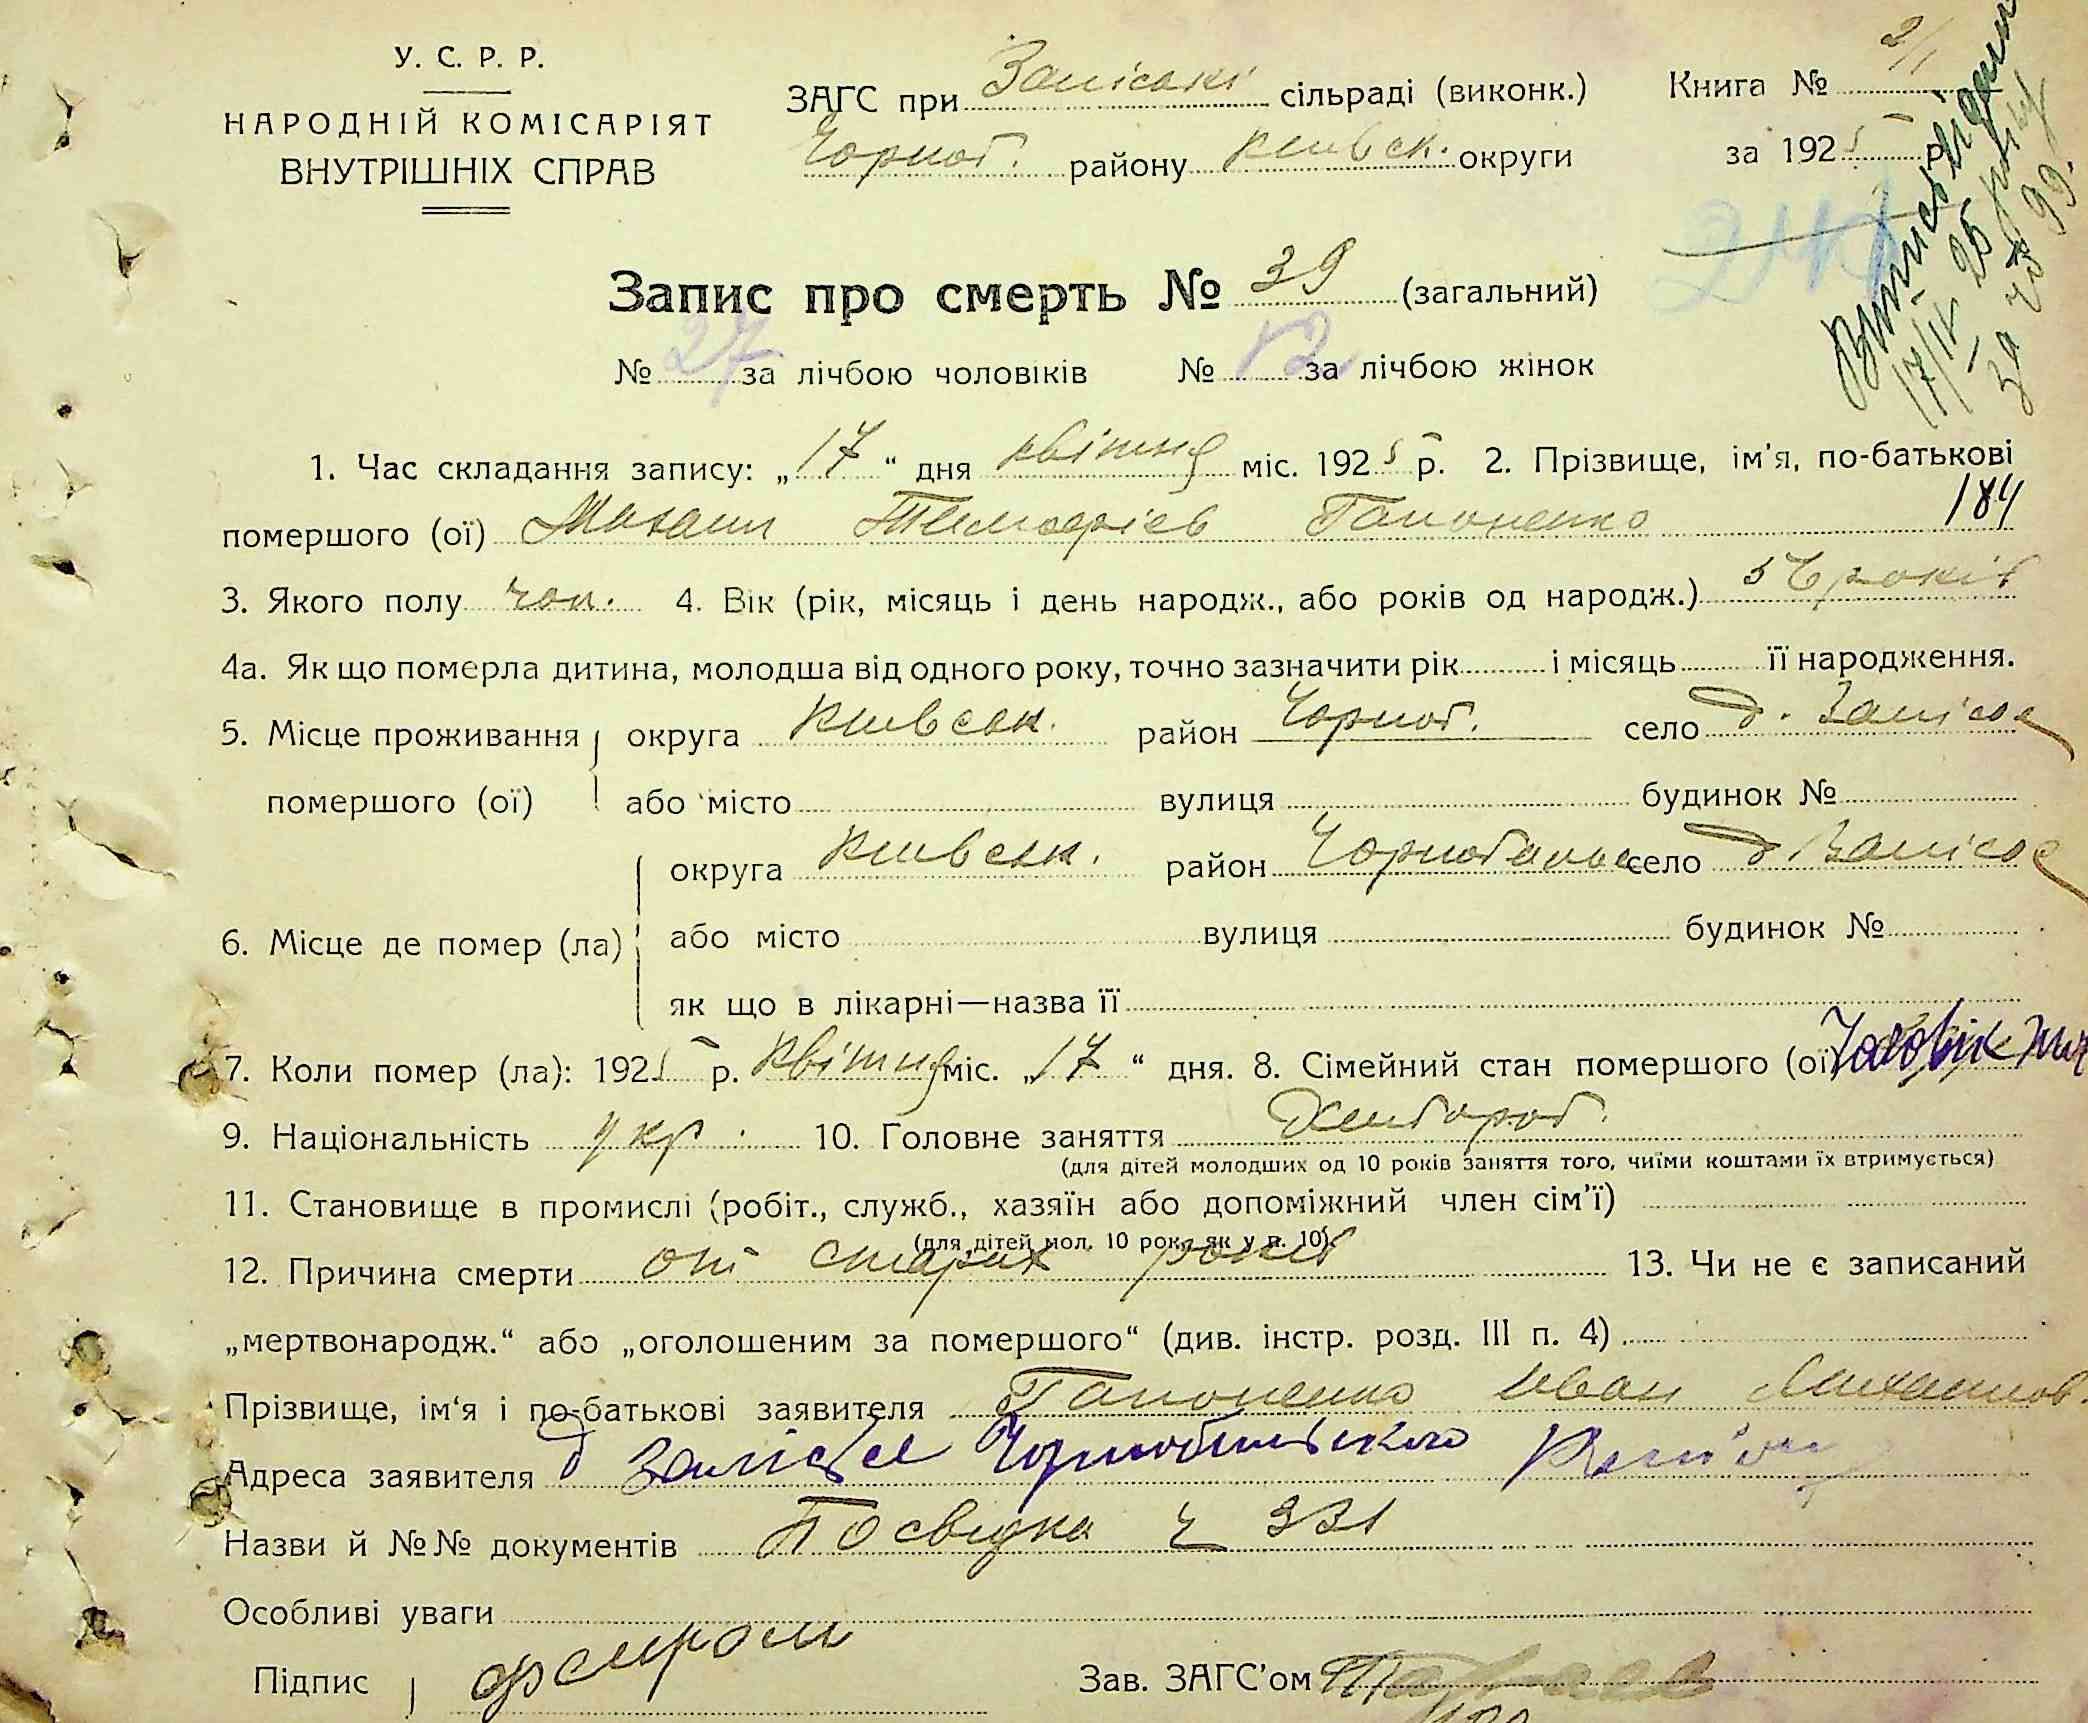 У. С. Р. Р.
НАРОДНІЙ КОМІСАРІЯТ
ВНУТРІШНІХ СПРАВ
ЗАГС при Заліські сільраді (виконк.)
Чорноб. району Київськ. округи
Книга № 2/1
за 1925 р.
Запис про смерть № 39 (загальний)
№ 27 за лічбою чоловіків № 12 за лічбою жінок
Витпис видани
17/IV 25 року
за ч 99.
1. Час складання запису: „17“ дня квітня міс. 1925 р. 2. Прізвище, ім'я, по-батькові
помершого (ої) Михаил Тимофієв Гапоненко 184
3. Якого полу чол. 4. Вік (рік, місяць і день народж., або років од народж.) років
4а. Як що померла дитина, молодша від одного року, точно зазначити рік і місяць її народження.
5. Місце проживання помершого (ої) округа Київськ. район Чорноб. село д. Залісся
або місто вулиця будинок №
6. Місце де помер (ла) округа Київськ. район Чорнобильс село д Залісся
або місто вулиця будинок №
як що в лікарні—назва її
7. Коли помер (ла): 1925 р. Квітня міс. „17“ дня. 8. Сімейний стан помершого (ої) Чоловік
9. Національність укр. 10. Головне заняття Хлібороб.
(для дітей молодших од 10 років заняття того, чиїми коштами їх втримується)
11. Становище в промислі (робіт., служб., хазяїн або допоміжний член сім'ї)
(для дітей мол. 10 рок., як у п. 10).
12. Причина смерти от старих років 13. Чи не є записаний
„мертвонародж.“ або „оголошеним за помершого“ (див. інстр. розд. III п. 4)
Прізвище, ім'я і по-батькові заявителя Гапоненко Иван Михаилов.
Адреса заявителя д Залісье Чорнобильського
Назви й №№ документів Посвідка ч 331
Особливі уваги
Підпис
Зав. ЗАГС'ом